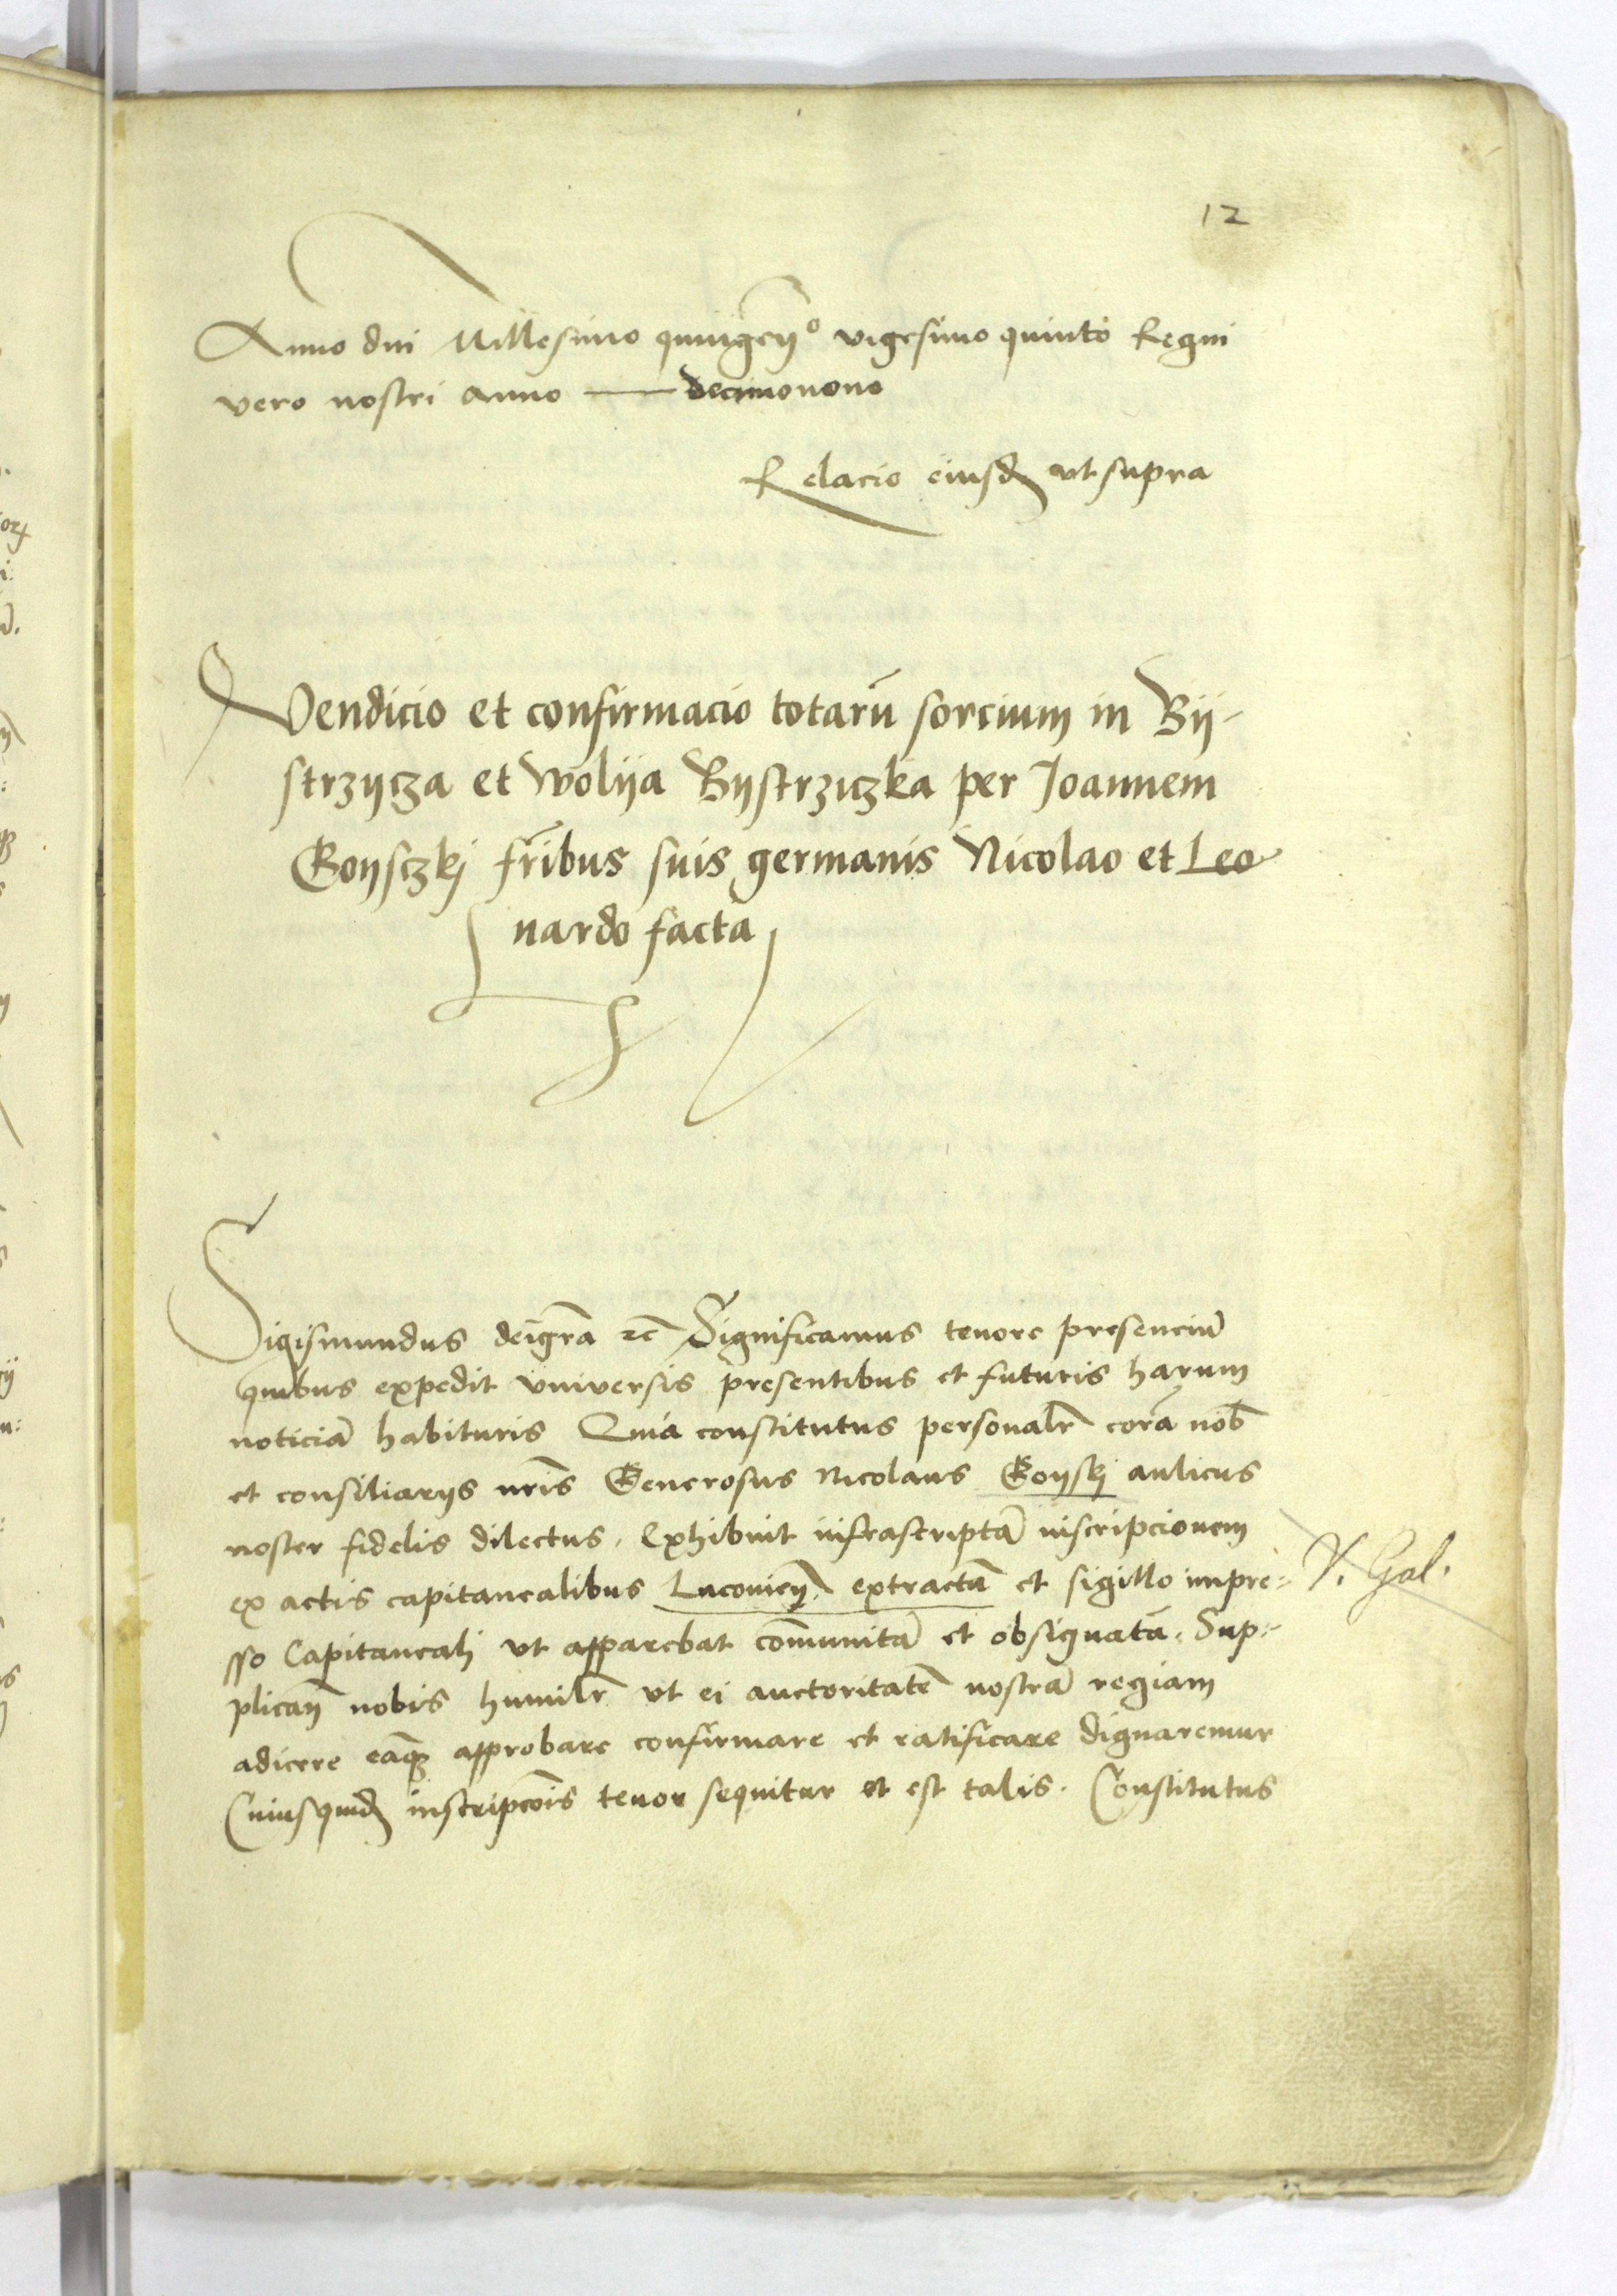 12
Anno dni Millesimo quingen° vigesimo quinto Regni
vero nostri anno — decimonono
Relacio eiusd ut supra
Vendicio et confirmacio totarū sorcium in Bÿ-
strzÿcza et Wolÿa Bÿstrziczka per Joannem
Goÿsczkj fr̄ibus suis germanis Nicolao et Leo
nardo facta
Sigismundus dei gr̄a ꝛc̄ Significamus tenore presenciū
quibus expedit universis presentibus et futuris harum
noticiā habituris Quia constitutus personalr̄ corā nob̄
et consiliarÿs nr̄is Generosus Nicolaus Goÿskj aulicus
noster fidelis dilectus. Exhibuit infrascriptā inscripcionem
ex actis capitanealibus Lucovien̄ extractā et sigillo impre-
sso Capitaneali ut apparebat com̄unitā et obsignatā. Sup-
plican̄ nobis humilr̄ ut ei auctoritatē nostrā regiam
adicere eāqꝫ approbare confirmare et ratificare dignaremur
Cuiusquid inscripc̄ois tenor sequitur et est talis. Constitutus
Gal.